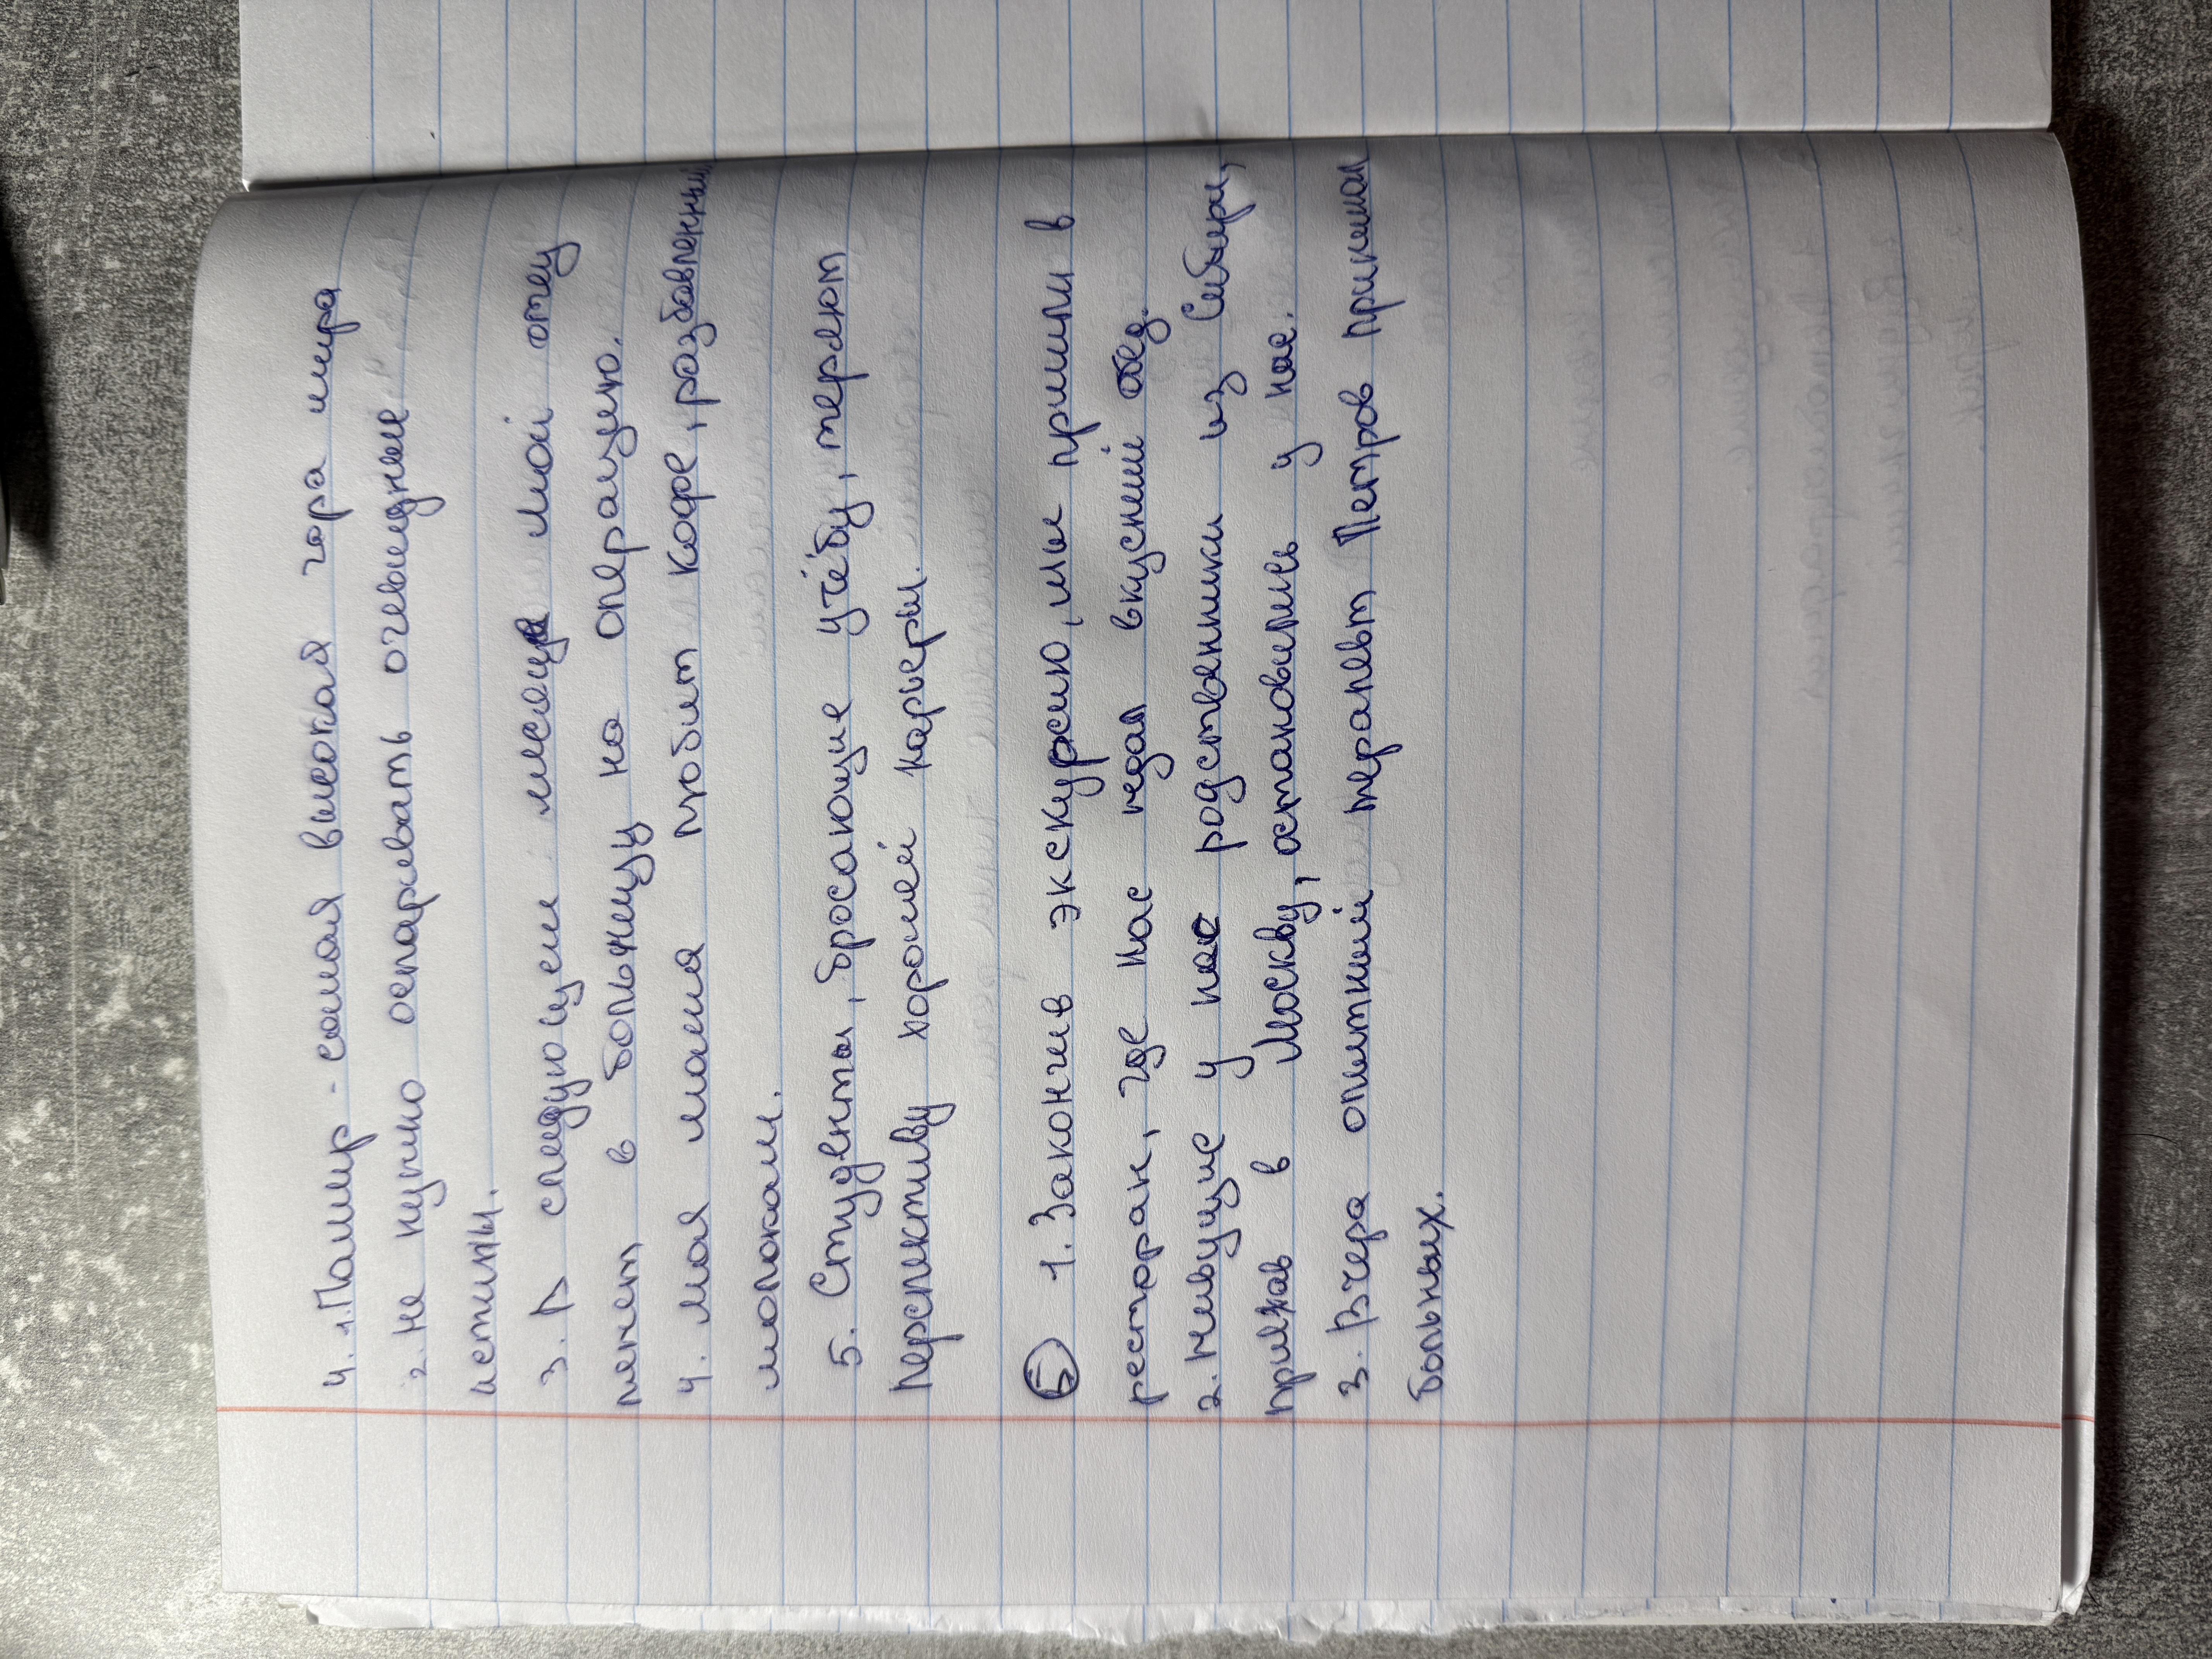 4. 1. Памир - самая высокая гора мира
2. Не нужно оспаривать очевидные
истины.
3. В следующем месяце мой отец
ляжет в больницу на операцию.
4. Моя мама любит кофе, разбавленный
молоком.
5. Студенты, бросающие учёбу, теряют
перспективу хорошей карьеры.
Б 1. Закончив экскурсию, мы пришли в
ресторан, где нас ждал вкусный обед.
2. Живущие у нас родственники из Сибири,
приехав в Москву, остановились у нас.
3. Вчера опытный терапевт Петров принимал
больных.